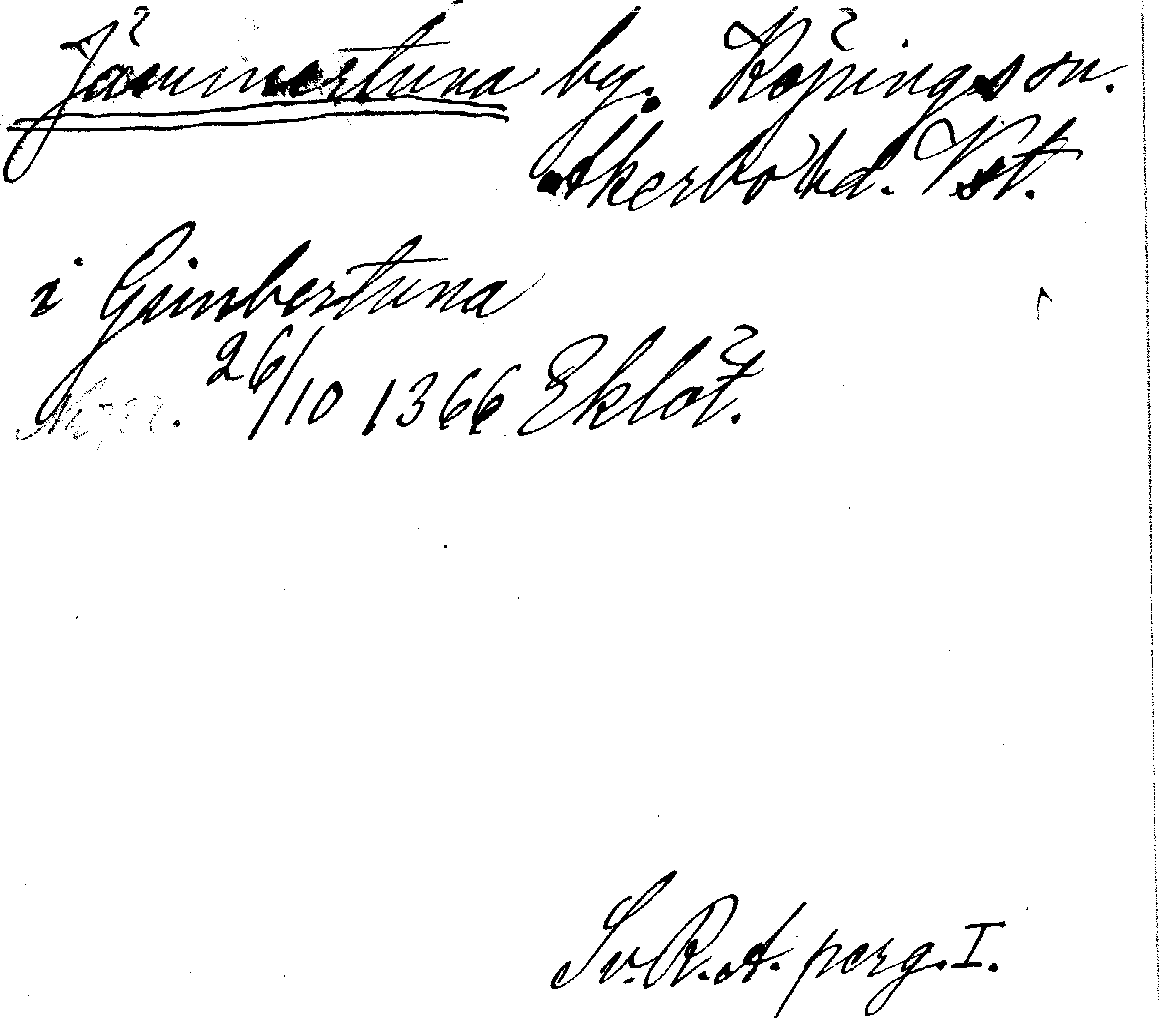 Jämmertuna by. Köpings sn.
Åkerbo hd. Vst.
i Geinbertuna
26/10 1366 Eklöt.
Sv. R. A. perg. I.